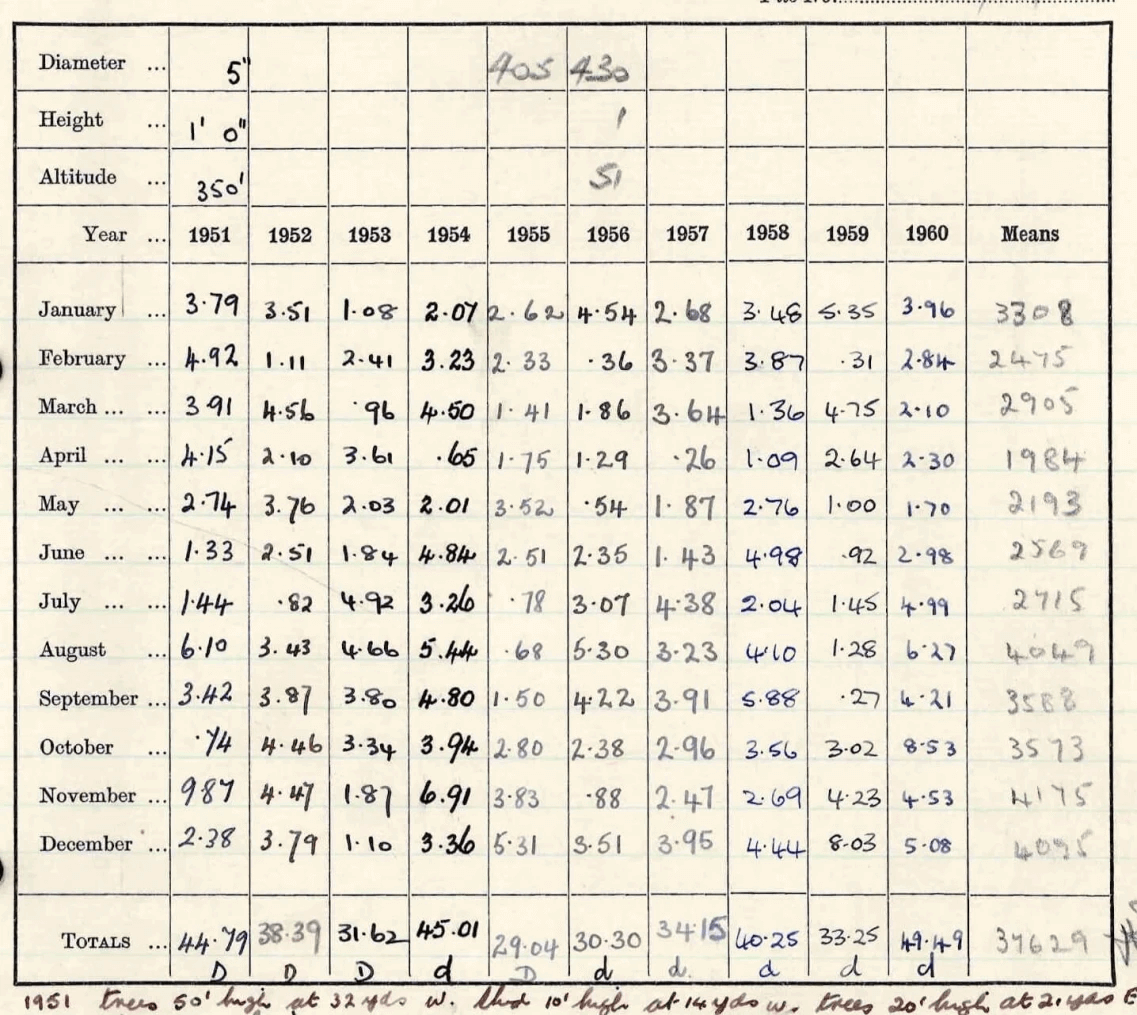 Diameter ... 5" 405 430
Height ... 1' 0" 1
Altitude ... 350' 51
Year ... 1951 1952 1953 1954 1955 1956 1957 1958 1959 1960 Means
January ... 3.79 3.51 1.08 2.07 2.62 4.54 2.68 3.48 5.35 3.96 3308
February ... 4.92 1.11 2.41 3.23 2.33 .36 3.37 3.87 .31 2.84 2475
March ... ... 3 91 4.56 .96 4.50 1.41 1.86 3.64 1.36 4.75 2.10 2905
April ... ... 4.15 2.10 3.61 .65 1.75 1.29 .26 1.09 2.64 2.30 1984
May ... ... 2.74 3.76 2.03 2.01 3.52 .54 1.87 2.76 1.00 1.70 2193
June ... ... 1.33 2.51 1.84 4.84 2.51 2.35 1.43 4.98 .92 2.98 2569
July ... ... 1.44 .82 4.92 3.26 .78 3.07 4.38 2.04 1.45 4.99 2715
August ... 6.10 3.43 4.66 5.44 .68 5.30 3.23 4.10 1.28 6.27 4049
September ... 3.42 3.87 3.80 4.80 1.50 4.22 3.91 5.88 .27 4.21 3588
October ... .74 4.46 3.34 3.94 2.80 2.38 2.96 3.56 3.02 8.53 3573
November ... 987 4.47 1.87 6.91 3.83 .88 2.47 2.69 4.23 4.53 4175
December ... 2.38 3.79 1.10 3.36 5.31 3.51 3.95 4.44 8.03 5.08 4095
TOTALS ... 44.79 38.39 31.62 45.01 29.04 30.30 34.15 40.25 33.25 49.49 37629
D D D d D d d. d d d
1951 trees 50' high at 32 yds W. 10' high at 14 yds W. trees 20' high at 21 yds E